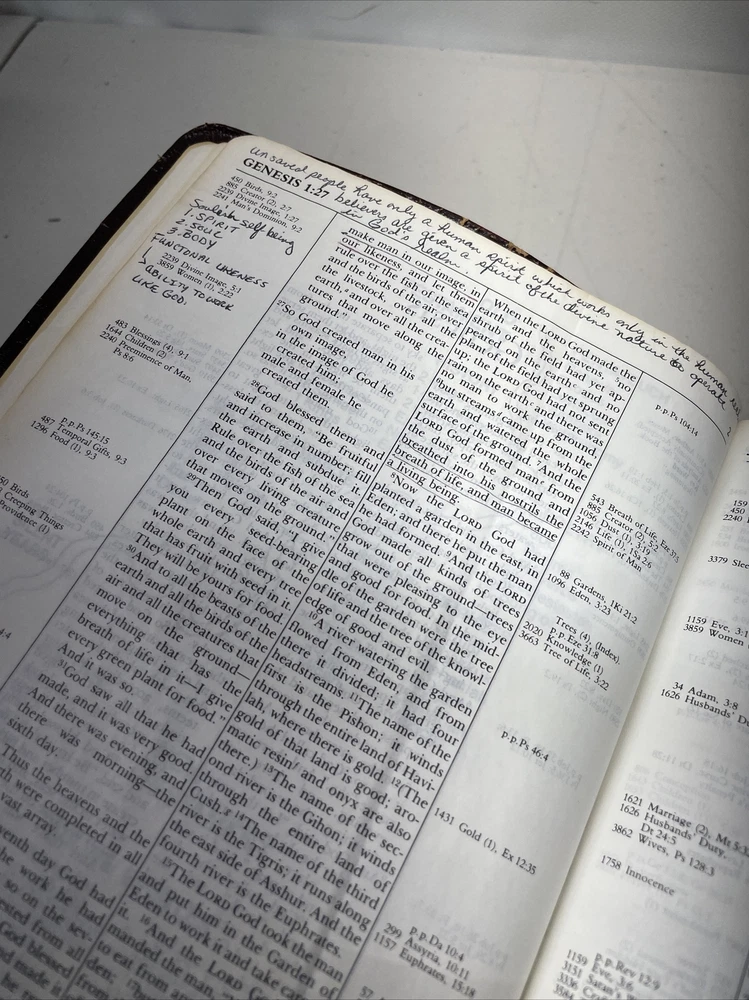 unsaved people have only a human spirit which works only in the human
GENESIS 1:27 believers are given a spirit of the divine nature to operate
in God's realm.
450 Birds, 9:2
885 Creator (2), 2:7
2239 Divine Image, 1:27
2241 Man's Dominion, 9:2
Soulish self being
1. SPIRIT
2. SOUL
3. BODY
FUNCTIONAL LIKENESS
2239 Divine Image, 5:1
3859 Women (1), 2:22
ABILITY TO WORK
LIKE GOD.
483 Blessings (4), 9:1
1644 Children (2)
2240 Preeminence of Man,
Ps 8:6
487 p.p.Ps 145:15
Temporal Gifts, 9:3
1296 Food (1), 9:3
50 Birds
Creeping Things
Providence (1)
4:4
make man in our image, in
our likeness, and let them
rule over the fish of the sea
and the birds of the air, over
the livestock, over all the
earth, and over all the crea-
tures that move along the
ground."
27So God created man in his
own image,
in the image of God he
created him;
male and female he
created them.
28God blessed them and
said to them, "Be fruitful
and increase in number; fill
the earth and subdue it.
Rule over the fish of the sea
and the birds of the air and
over every living creature
that moves on the ground."
29Then God said, "I give
you every seed-bearing
plant on the face of the
whole earth and every tree
that has fruit with seed in it.
They will be yours for food.
30And to all the beasts of the
earth and all the birds of the
air and all the creatures that
move on the ground—
everything that has the
breath of life in it—I give
every green plant for food."
And it was so.
31God saw all that he had
made, and it was very good.
And there was evening, and
there was morning—the
sixth day.
Thus the heavens and the
were completed in all
vast array.
seventh day God had
the work he had
so on the sev-
rested from all
God blessed
made it
When the LORD God made the
earth and the heavens, 5no
shrub of the field had yet ap-
peared on the earth and no
plant of the field had yet sprung
up; the LORD God had not sent
rain on the earth and there was
no man to work the ground,
6but streams came up from the
earth and watered the whole
surface of the ground. 7And the
LORD God formed man from
the dust of the ground and
breathed into his nostrils the
breath of life, and man became
a living being.
8Now the LORD God had
planted a garden in the east, in
Eden; and there he put the man
he had formed. 9And the LORD
God made all kinds of trees
grow out of the ground—trees
that were pleasing to the eye
and good for food. In the mid-
dle of the garden were the tree
of life and the tree of the knowl-
edge of good and evil.
10A river watering the garden
flowed from Eden, and from
there it divided; it had four
headstreams. 11The name of the
first is the Pishon; it winds
through the entire land of Havi-
lah, where there is gold. 12(The
gold of that land is good; aro-
matic resin and onyx are also
there.) 13The name of the sec-
ond river is the Gihon; it winds
through the entire land of
Cush. 14The name of the third
river is the Tigris; it runs along
the east side of Asshur. And the
fourth river is the Euphrates.
15The LORD God took the man
and put him in the Garden of
Eden to work it and take care
it. 16And the LORD God
manded the man,
to eat from
den;
p.p.Ps 104:14
543 Breath of Life, Eze 37:5
885 Creator (2), 5:2
1056 Dust (1), 3:19
2146 Life (1), 1S 2:6
2242 Spirit of Man
88 Gardens, 1Ki 21:2
1096 Eden, 3:23
Trees (4), (Index).
p.p.Eze 31:8
2020 Knowledge (1)
3663 Tree of Life, 3:22
p.p.Ps 46:4
1431 Gold (1), Ex 12:35
p.p.Da 10:4
299 Assyria, 10:11
1157 Euphrates, 15:18
159
450
2240
3379
1159 Eve, 3:
3859 Women
34 Adam, 3:8
1626 Husbands'
1621 Marriage (2), Mt 5:3
1626 Husbands' Duty,
Dt 24:5
3862 Wives, Ps 128:3
1758 Innocence
p.p.Rev 12:9
1159 Eve, 3:6
3151 Satan'
3336